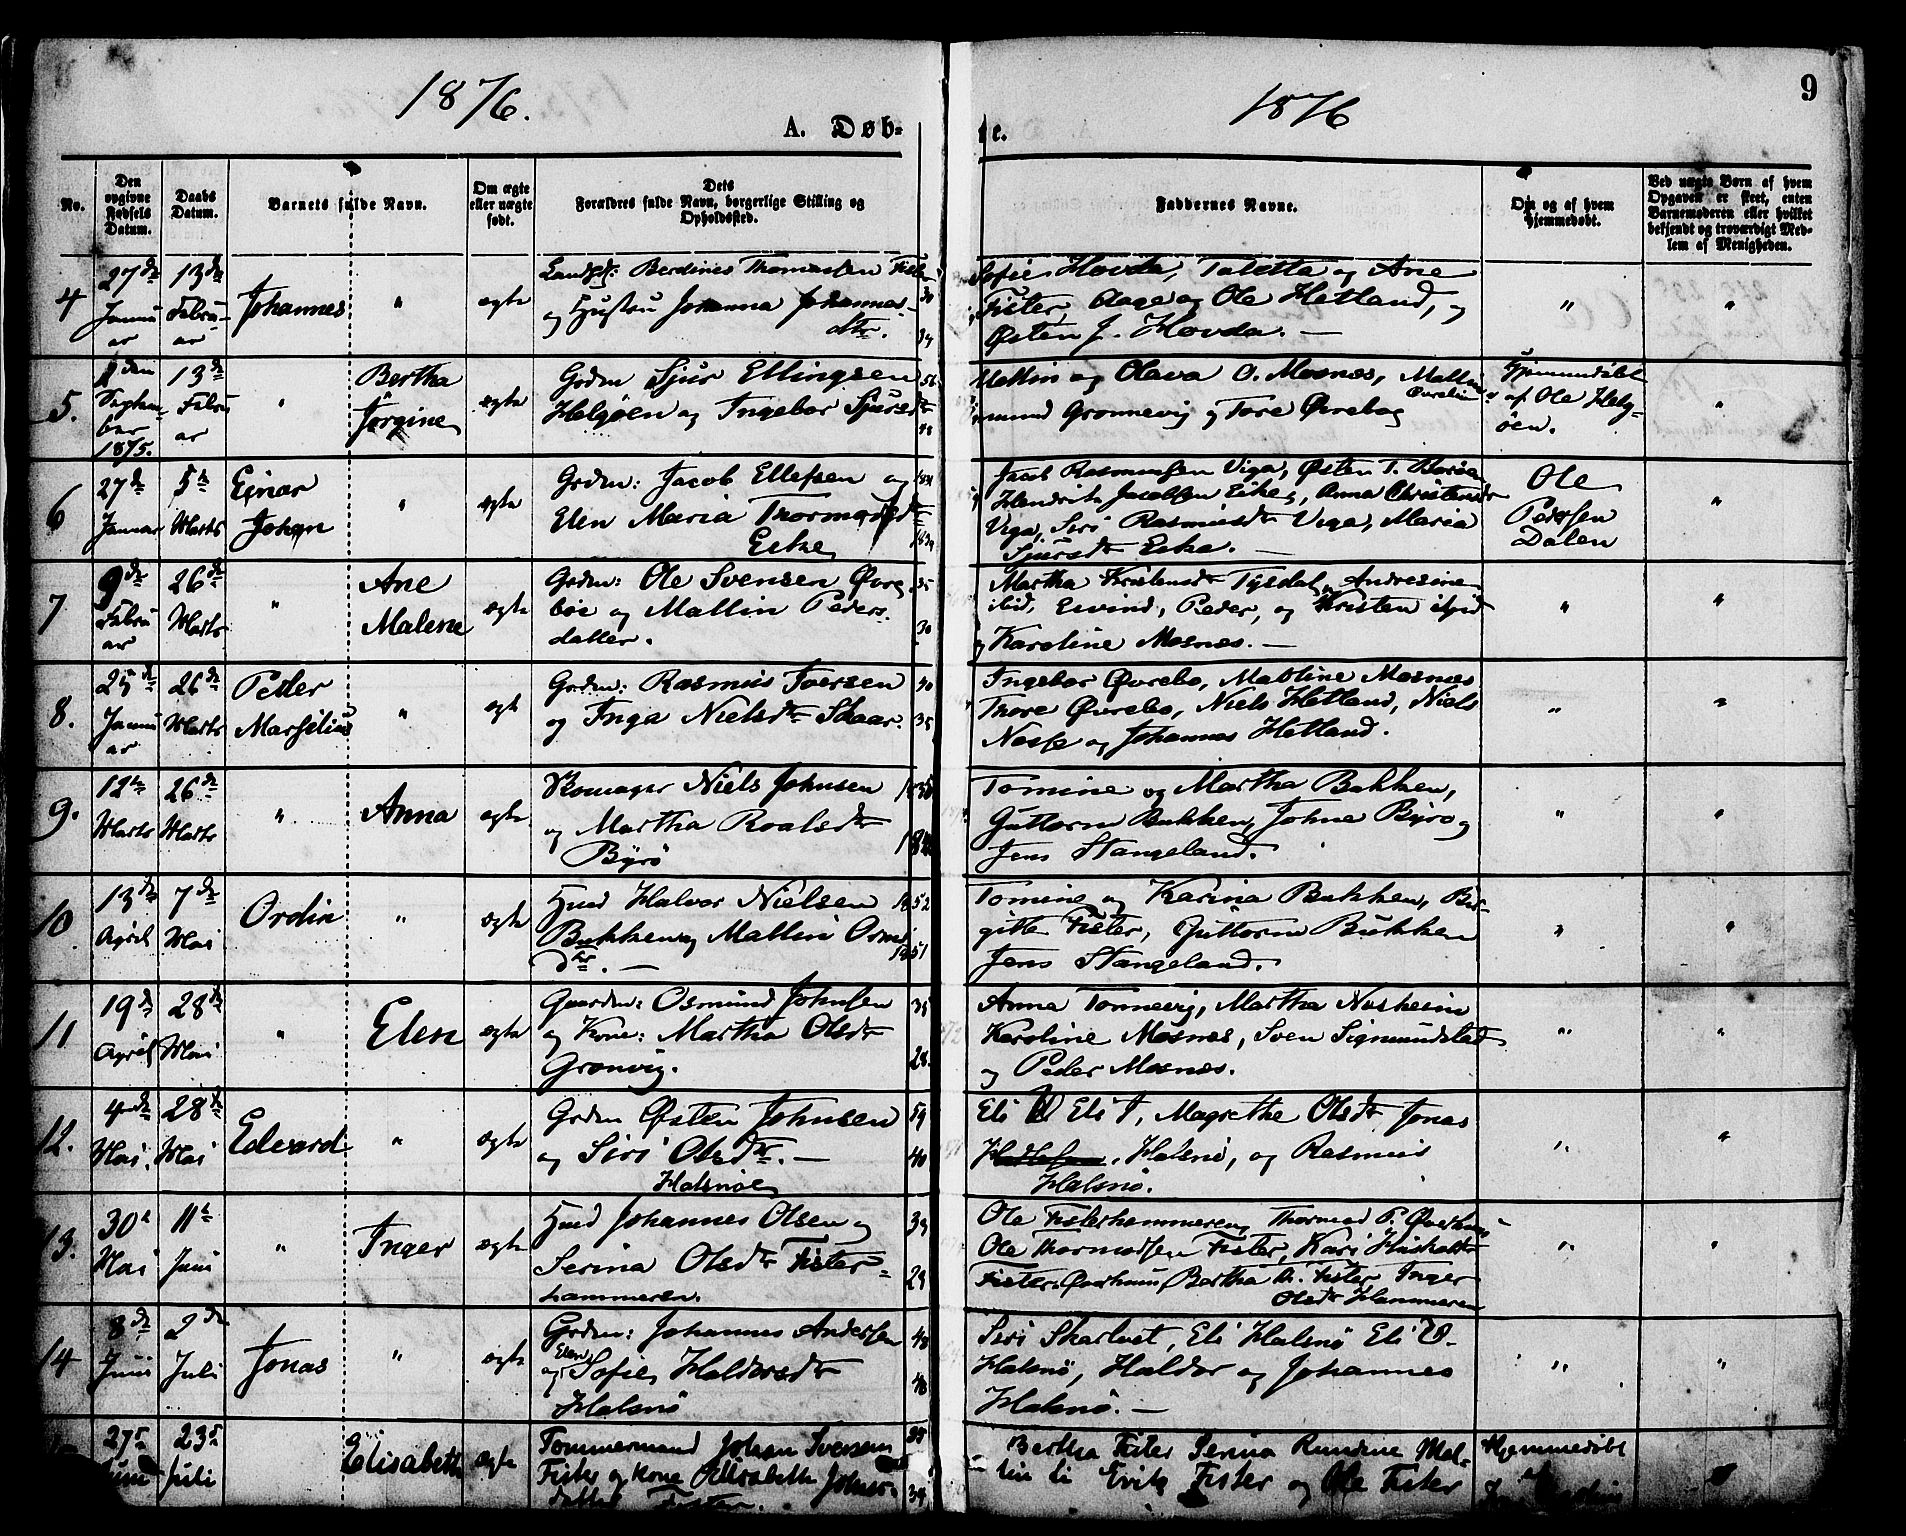 1876.
1876
9
A. Døb-
te.
No.
Den opgivne Fødsels Datum.
Daabs Datum.
Barnets fulde Navn.
Om ægte eller uægte født.
Dets Forældres fulde Navn, borgerlige Stilling og Opholdssted.
Faddernes Navne.
Om og af hvem hjemmedøbt.
Ved uægte Børn af hvem Opgaven er skeet, enten Barnemoderen eller hvilket bekjendt og troværdigt Medlem af Menigheden.
4
27de Januar
13de Februar
Johannes
"
ægte
Berdines Thomassen
og Hustru Johanna Johannes-
dtr.
Sofie Hovda, Taletta og Ane
Fister, Aage og Ole Hetland, og
Østen J. Hovda. —
"
"
5.
September 1875.
13de Februar
"
Bertha
Jørgine
ægte
Grdm Sjur Ellingsen
Helgøen og Ingebor Sjursdtr
56
Mallin og Olava O. Mosnæs,
Grønnevig og Tore Øvrebø
Hjemmedøbt
af Ole Helg-
øen.
"
6
27de Januar
5te Marts
Ejnar
Johan
"
ægte
Grdm: Jacob Ellefsen og
Elen Maria
Eike
Jacob Rasmussen Viga, Østen T.
Hendrik Jacobsen Eike, Anna Christensdtr
Viga, Siri Rasmusdtr Viga, Maria
Sjursdtr Eike. —
Ole
Pedersen
Dalen
"
7
9de Februar
26de Marts
"
Ane
Malene
ægte
Grdm: Ole Svensen Øvre
bøe og Mallin Peders
datter.
35
30
Martha Kristensdtr Tysdal, Andresine
ibid, Eivind, Peder, og Kristen ibid
og Karoline Mosnes. —
"
"
8.
25de Januar
26de Marts
Peder
Marselius
"
ægte
Grdm: Rasmus Iversen
og Inga Nielsdtr Skaar.
30
35
Ingebor Øvrebø, Mattine Mosnæs
Thore Øvrebø, Niels Hetland, Niels
og Johannes Hetland.
"
"
9.
12te Marts
26de Marts
"
Anna
ægte
Skomager Niels Johnsen
og Martha Roalsdtr
Byrø
Tomine og Martha Bukken,
Guttorm Bukken, Johne Byrø og
Jens Stangeland.
"
"
10
13de April
7de Mai
Ordin
"
ægte
Hmd Halvor Nielsen
Bukken og Mallin Orms
dtr. —
1852
1851
Tomine og Karina Bukken, Bir-
gitte Fister, Guttorm Bukken
Jens Stangeland.
"
"
11
19de April
28de Mai
"
Elen
ægte
Gaardm: Osmund Johnsen
og Kone: Martha Olsdtr
Grønvig.
35
28.
Anna Tønnevig, Martha Nesheim
Karoline Mosnæs, Sven Sigmundstad
og Peder Mosnæs.
"
"
12.
4de Mai.
28de Mai
Edvard
"
ægte
Grdm Østen Johnsen
og Siri Olsdtr. —
Halsnøe
59
40
Eli Eli I, Magrethe Olsdtr Jonas
Halsnø, og Rasmus
Halsnø.
"
"
13.
30te Mai
11te Juni
"
Inger
ægte
Hmd Johannes Olsen og
Serina Olsdtr Fister-
hammeren.
39
29
Ole Fisterhammeren, Thormod P.
Ole Thormodsen Fister, Kari
Fister, Bertha A. Fister, Inger
Olsdtr Hammeren
"
"
14
8de Juni
2den Juli
Jonas
"
ægte
Grdm: Johannes Andersen
og Elen Sofie Haldorsdtr
Halsnø
48
48
Siri Skartvet, Eli Halsnø Eli O.
Halsnø, Haldor og Johannes
Halsnø. —
"
"
27de Juni
23de Juli
Elisabeth
ægte
Tømmermand Johan Svensen
Fister og Kone Elisabeth Johns-
datter Fister.
39
Bertha Fister Serina Rundine Mal-
lin Li Erik Fister og Ole Fister
Hjemmedøbt
af
"